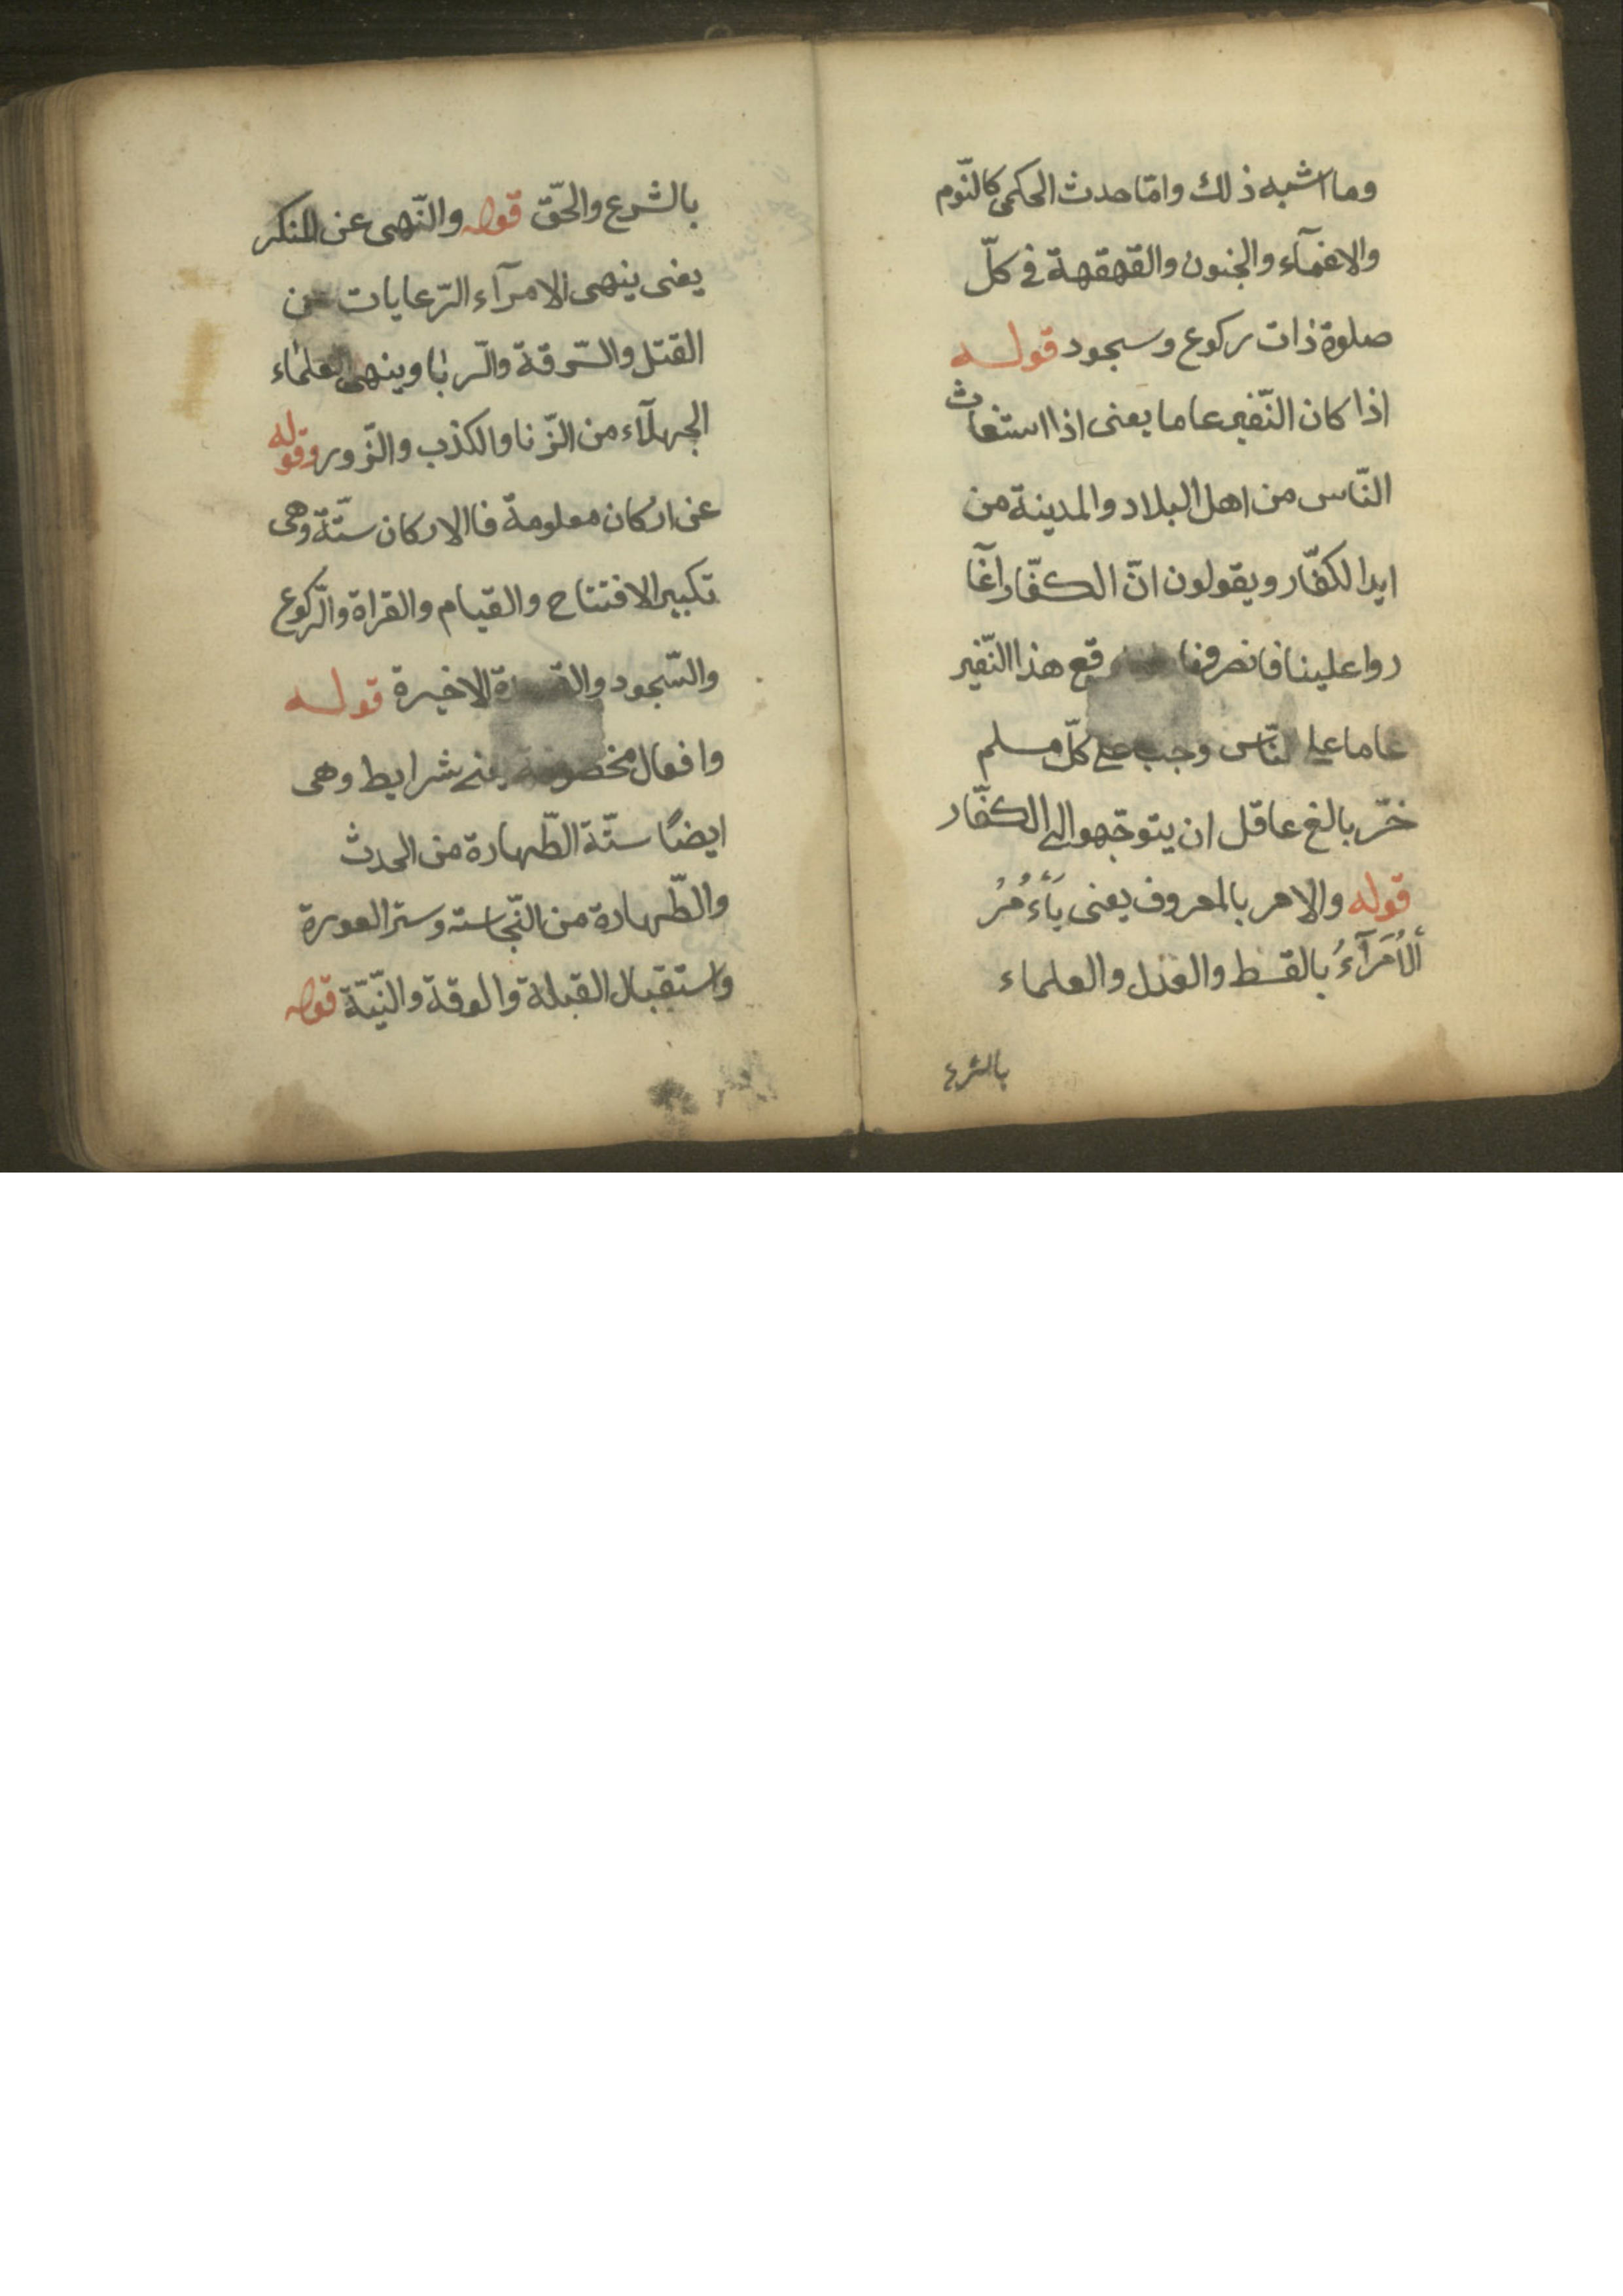 وما اشبه ذلك وامّا حدث الحكمى كالنّوم
والاغمآء والجنون والقهقهة فى كلّ
صلوة ذات ركوع وسجود قوله
اذا كان النّفير عاما يعنى اذا استغاث
النّاس من اهل البلاد والمدينة من
ايدا لكفّار ويقولون انّ الكفّار اغآ
روا علينا فانصرفنا وقع هذا النّفير
عاما على النّاس وجب على كلّ مسلم
خرّ بالغ عاقل ان يتوجّهوا الى الكفّار
قوله والامر بالمعروف يعنى يَاءْمُرُ
اَلْاُمَرَآءُ بالقسط والعدل والعلماء
بالشرع
بالشرع والحقّ قوله والنّهى عن المنكر
يعنى ينهى الامرآء الرّعايات عن
القتل والسّرقة والرّبا وينهى العلماء
الجهلآء من الزّنا والكذب والزّور وقوله
عن اركان معلومة فا الاركان ستّة وهى
تكبير الافتتاح والقيام والقراة والرّكوع
والسّجود والقعدة الاخيرة قوله
وافعال مخصوصة يعنى شرايط وهى
ايضًا ستّة الطّهارة من الحدث
والطّهارة من النّجاسته وستر العورة
واستقبال القبلة والوقة والنّيّة قوله